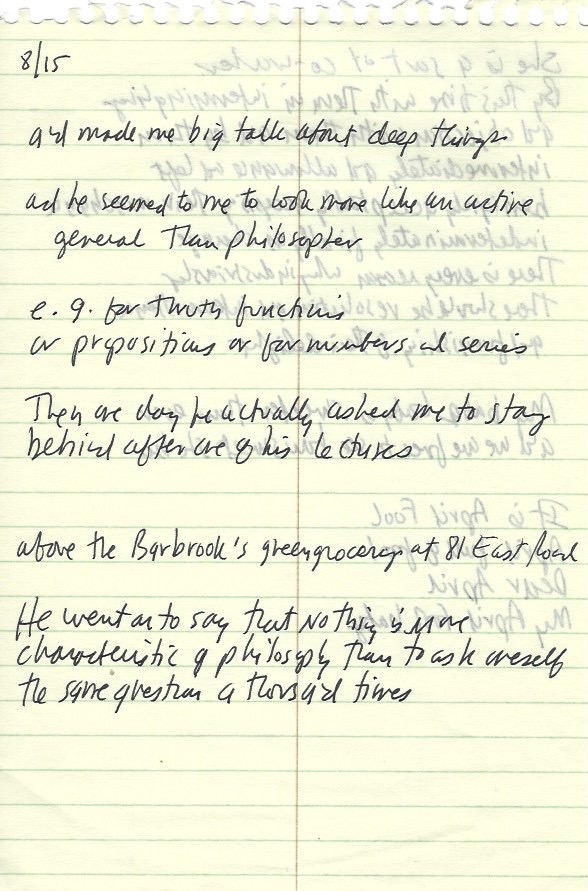 8/15
and made me big talk about deep things
and he seemed to me to look more like an active
general than philosopher
e.g. for truth functions
or propositions or for numbers and series
Then one day he actually asked me to stay
behind after one of his lectures
above the Barbrook's greengrocery at 81 East Road
He went on to say that nothing is more
characteristic of philosophy than to ask oneself
the same question a thousand times